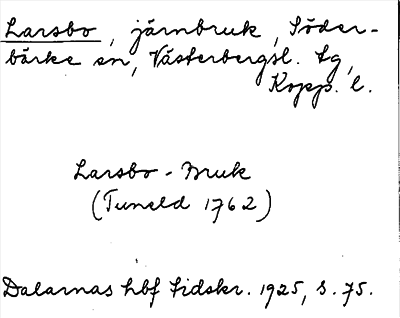 Larsbo, järnbruk, Söder-
bärke sn, Västerbergsl. tg,
Kopp. l.
Larsbo-Bruk
(Tuneld 1762)
Dalarnas hbf tidskr. 1925, s. 75.